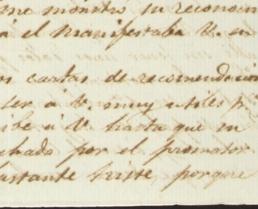 me mostró su reconoci
á él manifestaba V. en
n cartas de recomendación
ser á V. muy utiles p
ibe á V. hasta que su
chado por el promotor
bastante triste, porque